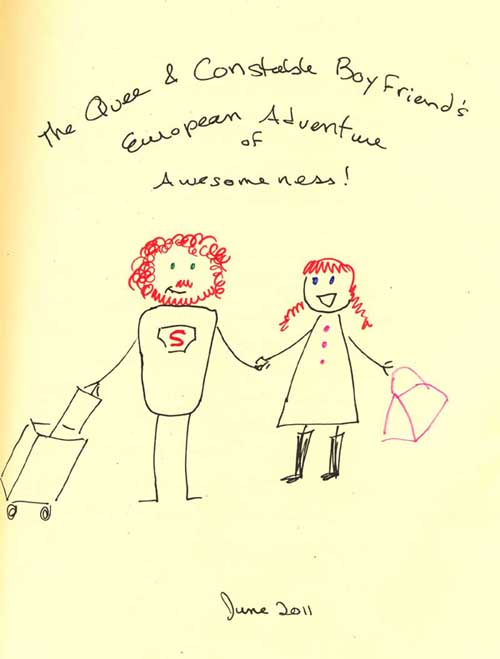 The Quee & Constable Boyfriend's
European Adventure
of
Awesomeness!
S
June 2011